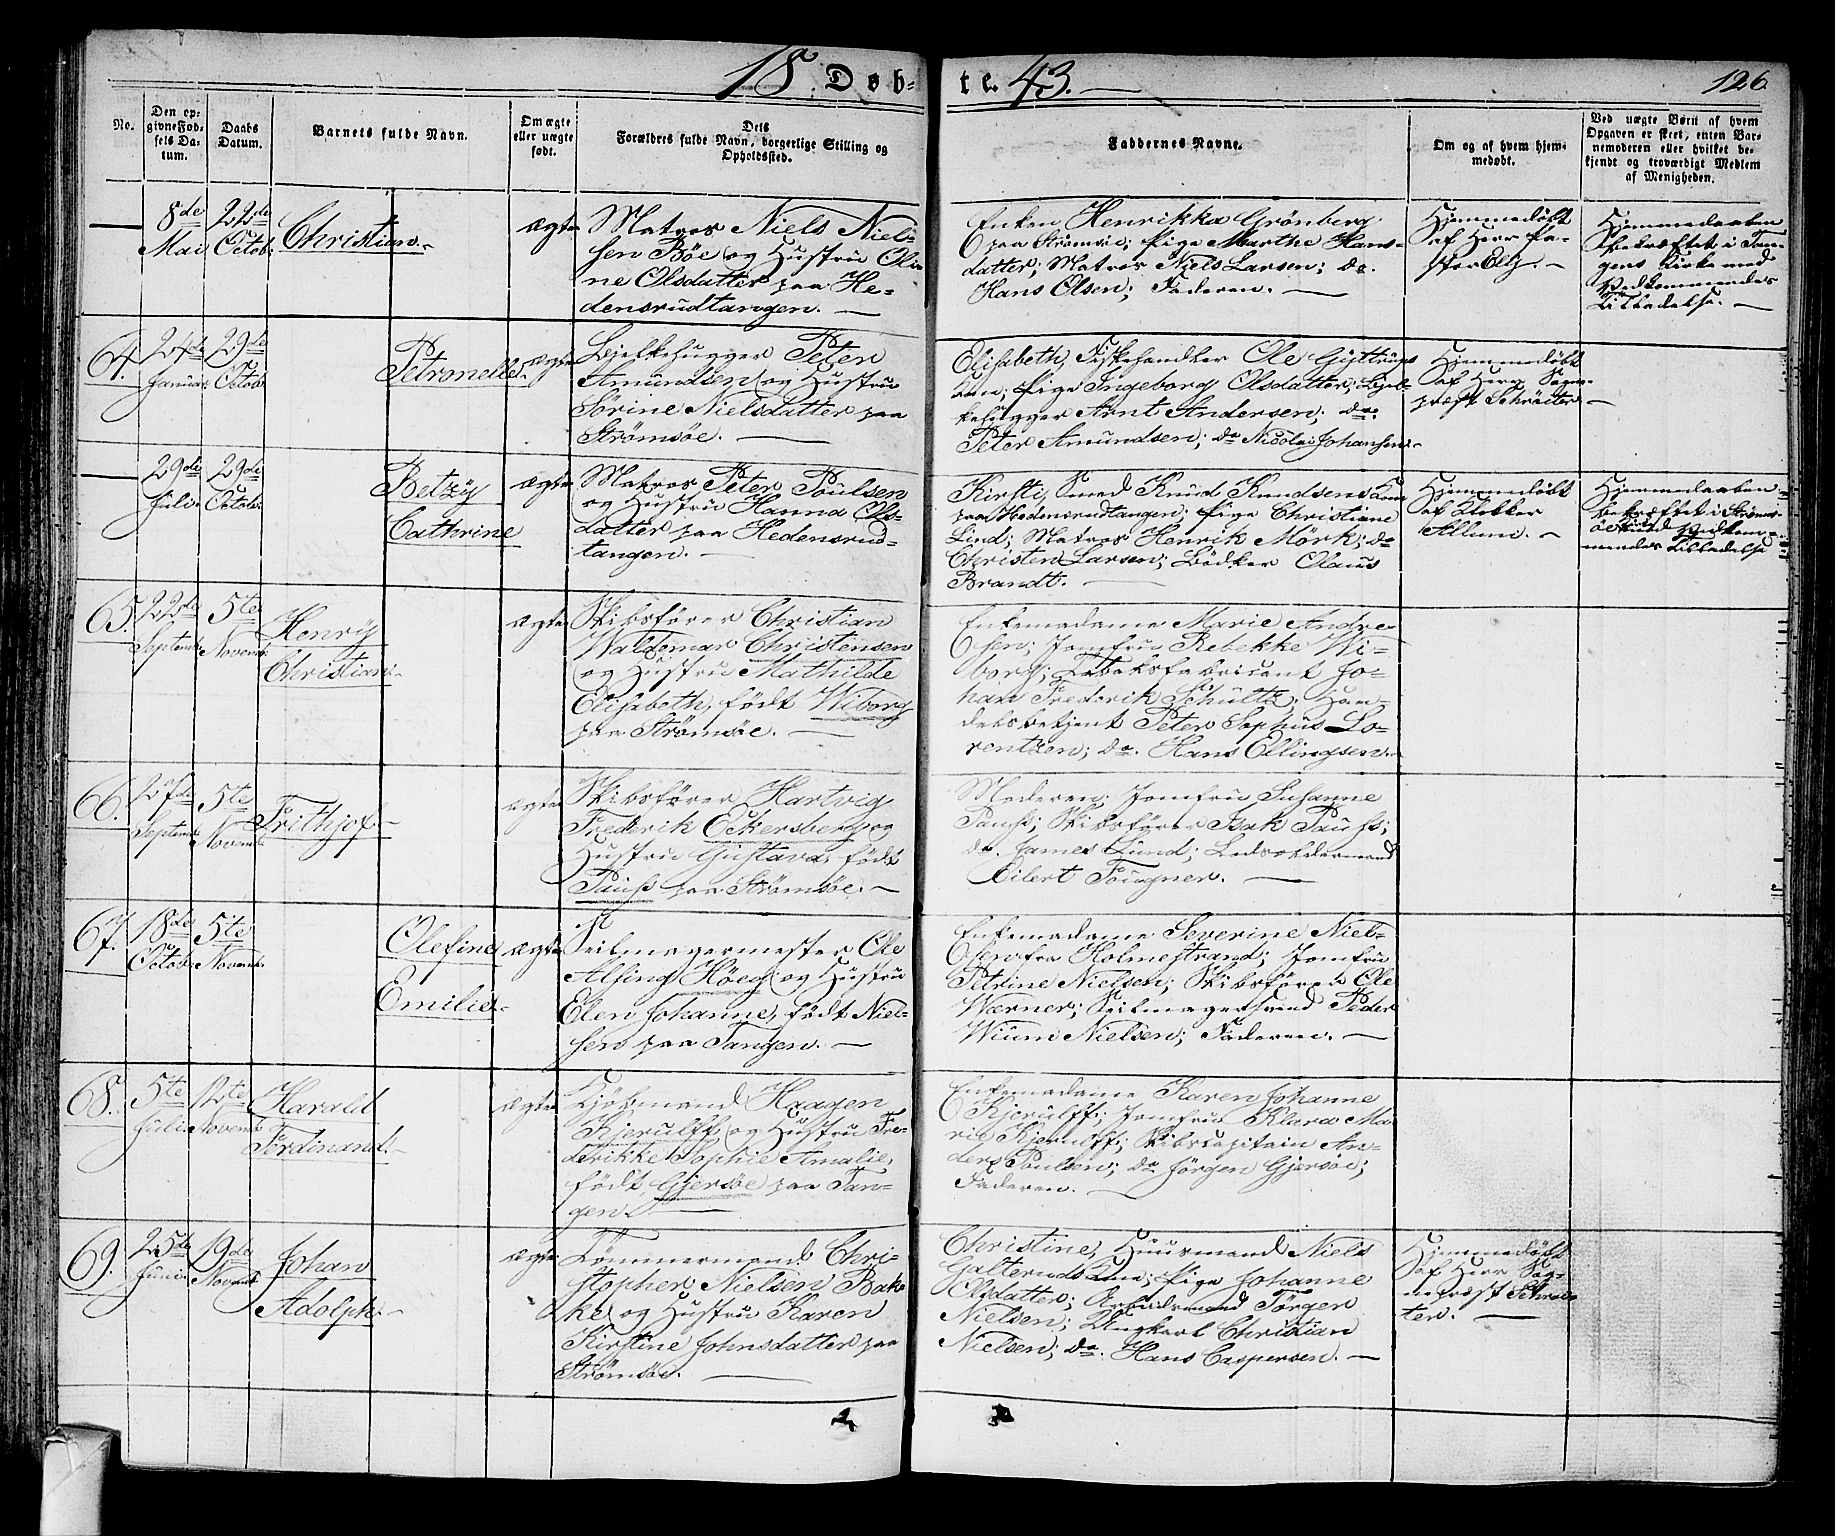 18 Døb-
te. 43.
126
No.
Den op-
givne Fød-
sels Da-
tum.
Daabs
Datum.
Barnets fulde Navn.
Om ægte
eller uægte
født.
Dets
Forældres fulde Navn, borgerlige Stilling og
Opholdssted.
Faddernes Navne.
Om og af hvem hjem-
medøbt.
Ved uægte Børn af hvem
Opgaven er skeet, enten Bar-
nemoderen eller hvilket be-
kjendt og troværdigt Medlem
af Menigheden.
—
8de
Mai
22de
Octob.
Christian.
ægte
Matros Niels Niel-
sen Böe og Hustru Oli-
ne Olsdatter paa He-
densrudtangen. —
Enken Henrikka Grönberg
paa Strömsöe; Pige Marthe Hans-
datter; Matros Niels Larsen; do.
Hans Olsen; Faderen. —
Hjemmedöbt
af Herr Pa-
stor Ely. —
Hjemmedaaben
bekræftet i Tan-
gens Kirke med
Vedkommendes
Tilladelse. —
64.
24de
Januar.
29de
Octob.
Petronelle.
ægte
Bjelkehugger Peter
Amundsen og Hustru
Sörine Nielsdatter paa
Strömsöe. —
Elisabeth, Fiskehandler Ole Gyttrups
Kone; Pige Ingeborg Olsdatter; Bjel-
kehugger Arnt Andersen; do.
Peter Amundsen; do Nicolai Johansen.
Hjemmedöbt
af Herr Sogne-
præst Schröter
—
—
29de
Juli
29de
Octob.
Betzÿ
Cathrine
ægte
Matros Peter Poulsen
og Hustru Hanna Ols-
datter paa Hedensrud-
tangen. —
Kirsti, Smed Knud Knudsens Kone
paa Hedensrudtangen; Pige Christiane
Lind; Matros Henrik Mörk; do
Christen Larsen; Bödker Olaus
Brandt. —
Hjemmedöbt
af Klokker
Allum. —
Hjemmedaaben
bekræftet i Ströms-
öe Kirke med Vedkom-
mendes Tilladelse
65.
22de
Septemb.
5te
Novemb.
Henrÿ
Christian.
ægte
Skibsförer Christian
Waldemar Christensen
og Hustru Mathilde
Elisabeth, födt Wiborg
paa Strömsöe. —
Enkemadame Marie Andre-
sen; Jomfru Rebekke Wi-
borg; Tobaksfabricant Jo-
han Frederik Schultz; Han-
delsbetjent Peter Sophus Lo-
rentzen; do. Hans Ellingsen.
66.
27de
Septemb.
5te
Novemb.
Frithjof.
ægte
Skibsförer Hartvig
Frederik Eckersberg og
Hustru Gustava, födt
Pauss paa Strömsöe. —
Moderen; Jomfru Susanne
Pauss; Skibsförer Isak Pauss;
do. James Lund; Lodsoldermand
Eilert Fougner. —
67.
18de
Octob.
5te
Novemb.
Olefine
Emilie.
ægte
Seilmagermester Ole
Alfing Höeg og Hustru
Elen Johanne, födt Niel-
sen paa Tangen. —
Enkemadame Severine Niel-
sen fra Holmestrand; Jomfru
Petrine Nielsen; Skibsförer Ole
Wærner; Seilmagersvend Peder
Wium Nielsen; Faderen. —
68.
5te
Juli
12te
Novemb.
Harald
Ferdinand.
ægte
Kjöbmand Haagen
Kjerulff og Hustru Fre-
derikke Sophie Amalie,
födt Gjersöe paa Tan-
gen. —
Enkemadame Karen Johanne
Kjerulff; Jomfru Klara Ma-
rie Kjerulff; Skibscapitain An-
ders Poulsen; do Jörgen Gjersöe;
Faderen. —
69.
25de
Juni
19de
Novemb.
Johan
Adolph.
ægte
Tömmermand Chri-
stopher Nielsen Bak-
ke og Hustru Karen
Kirstine Johnsdatter paa
Strömsöe. —
Christine, Huusmand Niels
Galteruds Kone; Pige Johanne
Olsdatter; Arbeidsmand Jörgen
Nielsen; Ungkarl Christian
Nielsen; do. Hans Caspersen. —
Hjemmedöbt
af Herr Sog-
nepræst Schrö-
ter. —